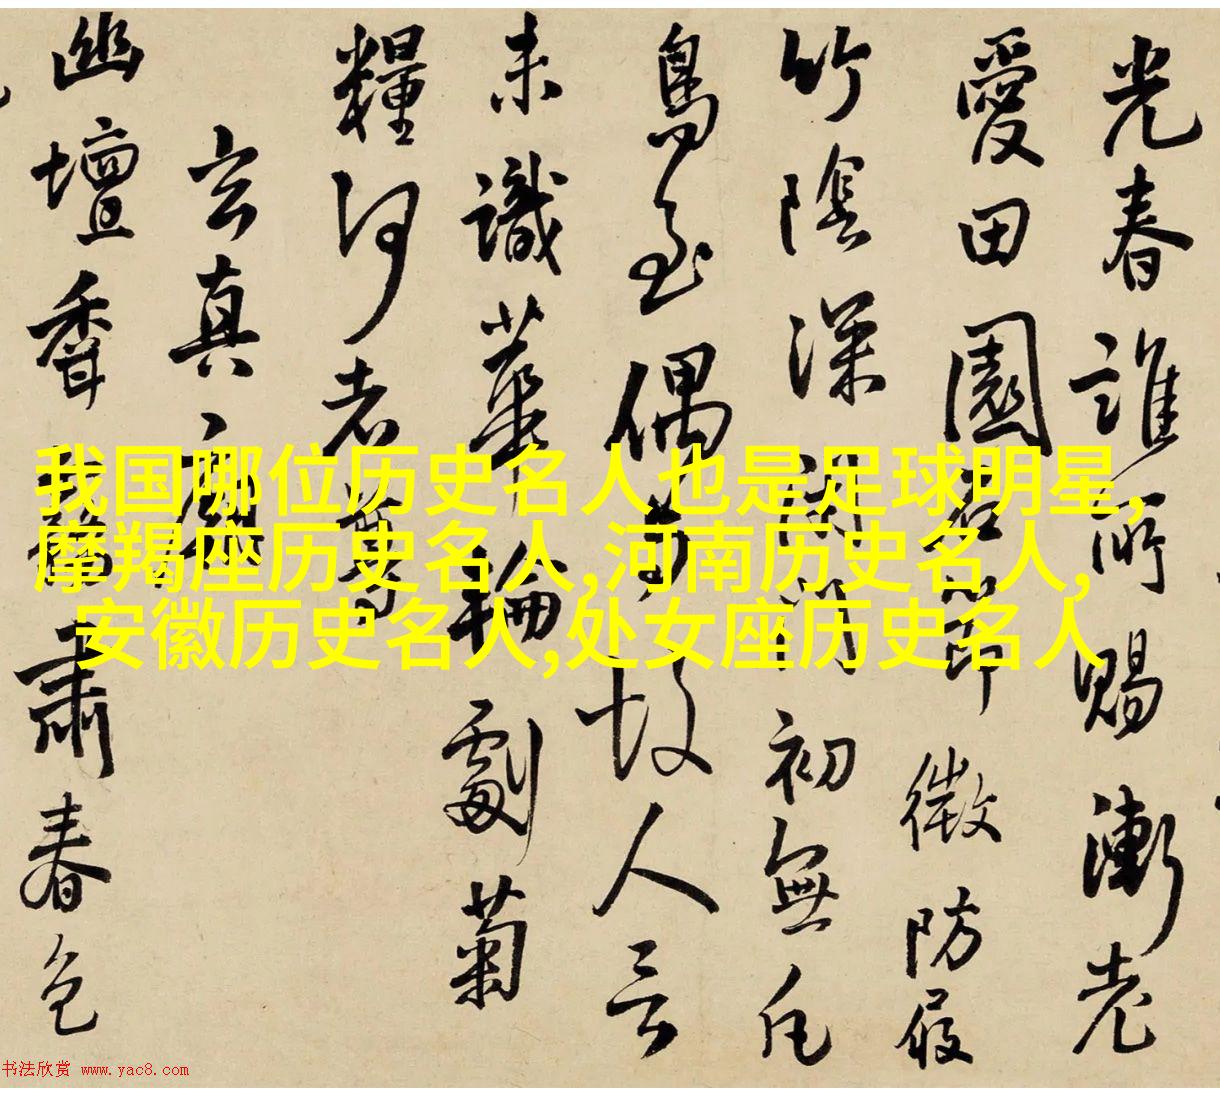 光春誰所賜漸老
愛田園節微防
竹陰深閉門初無凡
鳥至偶故人言
未識華輪劇菊
糧何老
玄真廟
幽壇肅春色
我国哪位历史名人也是足球明星,
摩羯座历史名人,河南历史名人,
安徽历史名人,处女座历史名人
书法欣赏 www.yac8.com